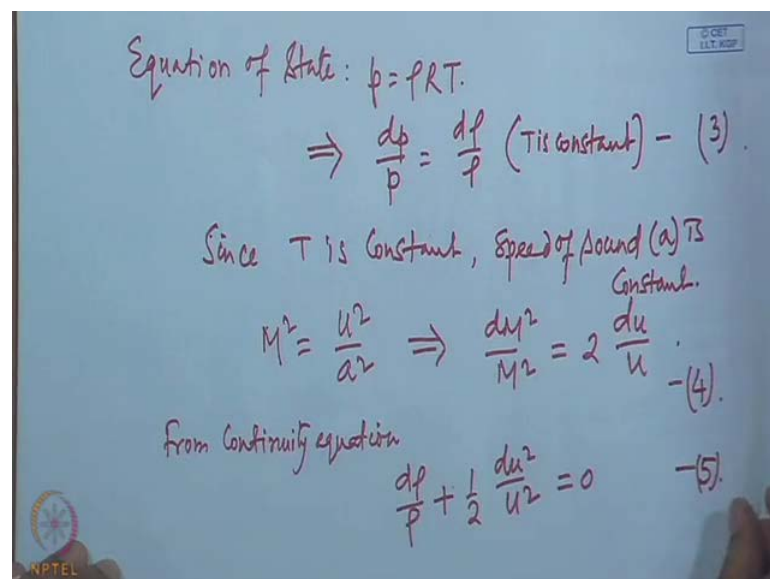 © CET
I.I.T. KGP
Equation of State: p = ρRT.
⇒ dp/p = dρ/ρ (T is constant) - (3).
Since T is Constant, Speed of sound (a) is
Constant.
M² = u²/a² ⇒ dM²/M² = 2 du/u .
-(4).
from Continuity equation
dρ/ρ + 1/2 du²/u² = 0 -(5).
NPTEL